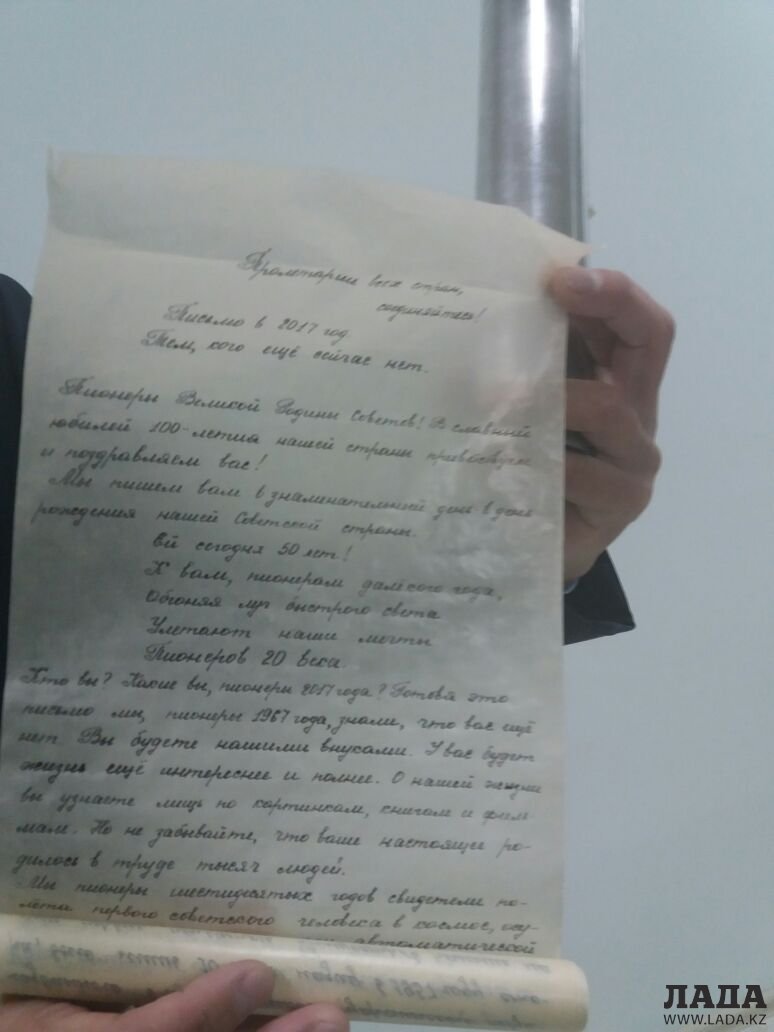 Пролетарии всех стран,
соединяйтесь!
Письмо в 2017 год
Тем, кого ещё сейчас нет.
Пионеры Великой Родины Советов! В славный
юбилей 100-летия нашей страны приветствуем
и поздравляем вас!
Мы пишем вам в знаменательный день в день
рождения нашей Советской страны.
Ей сегодня 50 лет!
К вам, пионерам далёкого года,
Обгоняя луч быстрого света
Улетают наши мечты
Пионеров 20 века.
Кто вы? Какие вы, пионеры 2017 года? Готовя это
письмо мы, пионеры 1967 года, знали, что вас ещё
нет. Вы будете нашими внуками. У вас будет
жизнь ещё интереснее и полнее. О нашей жизни
вы узнаете лишь по картинкам, книгам и филь-
мам. Но не забывайте, что ваше настоящее ро-
дилось в труде тысяч людей.
Мы пионеры шестидесятых годов свидетели по-
лёта первого советского человека в космос, осу-
автоматической
ЛАДА
WWW.LADA.KZ